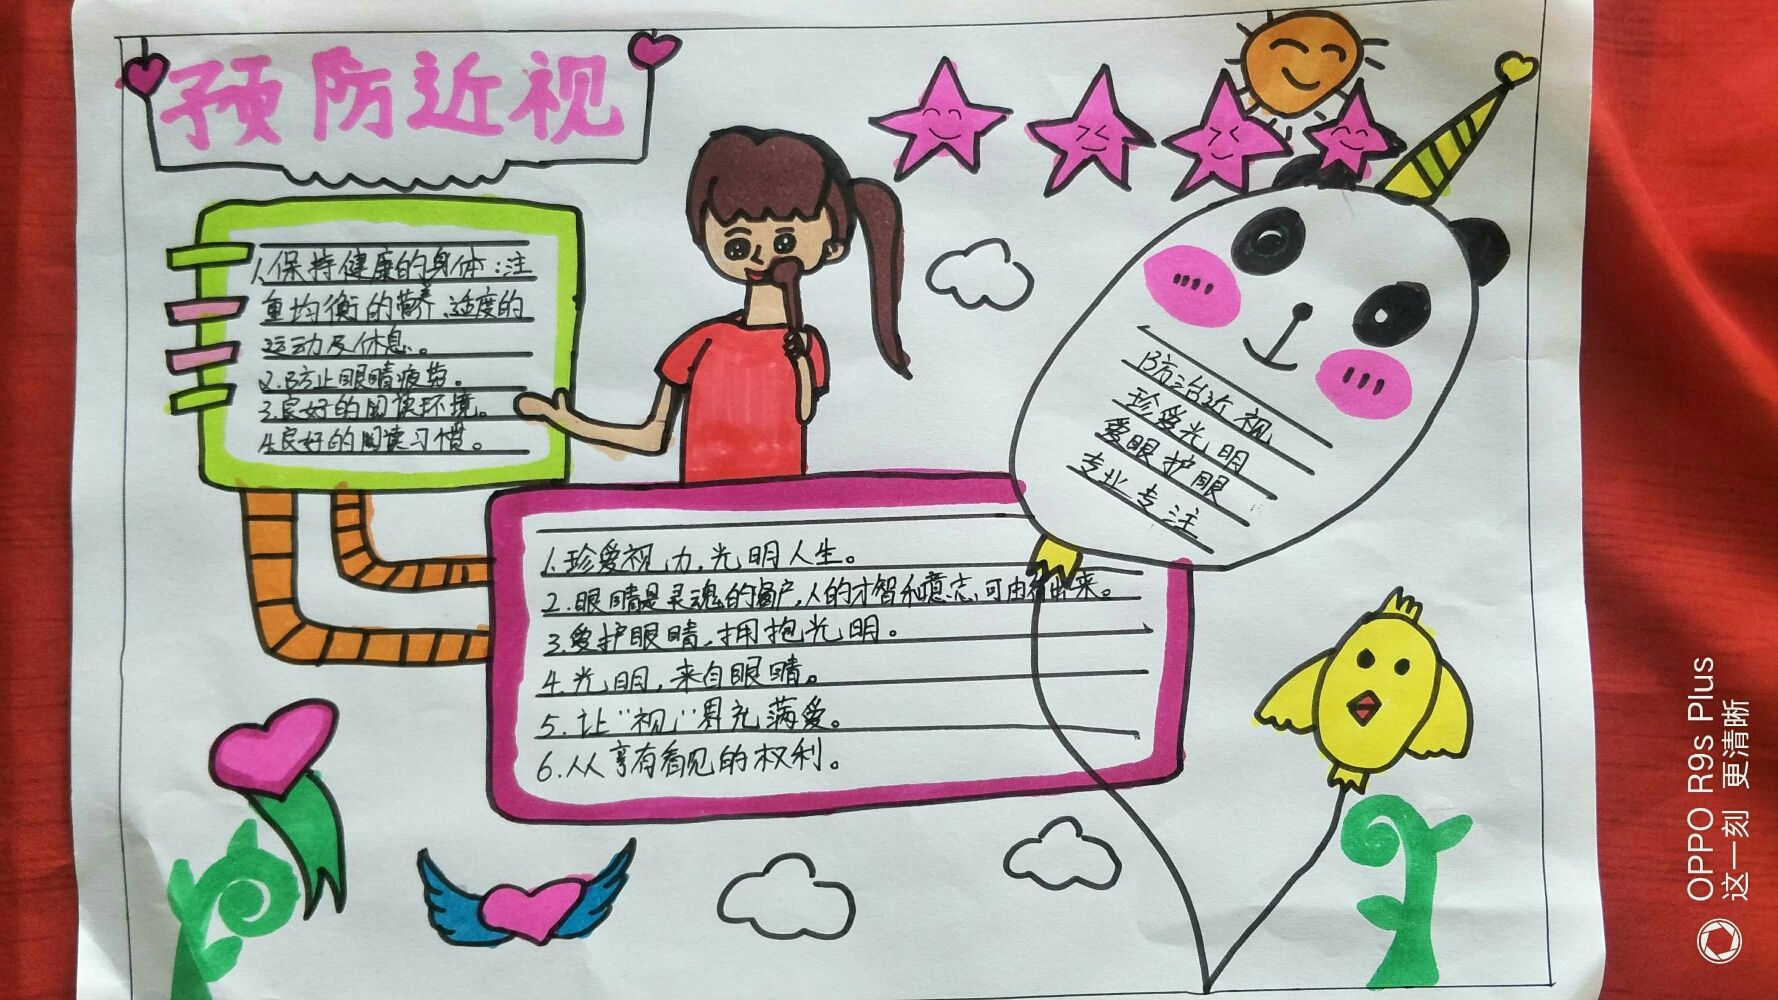 预防近视
1.保持健康的身体:注
重均衡的营养、适度的
运动及休息。
2.防止眼睛疲劳。
3.良好的阅读环境。
4.良好的阅读习惯。
防治近视
珍爱光明
爱眼护眼
专业专注
1.珍爱视力,光明人生。
2.眼睛是灵魂的窗户,人的才智和意志,可由看出来。
3.爱护眼睛,拥抱光明。
4.光明,来自眼睛。
5.让“视”界充满爱。
6.从享有看见的权利。
OPPO R9s Plus
这一刻 更清晰